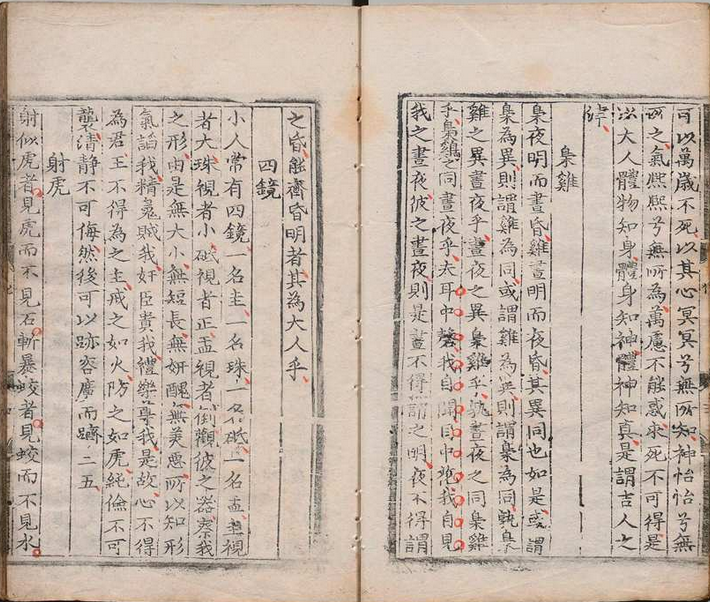 可以萬歲不死以其心冥冥兮無所知神怡怡兮無
所之氣熙熙兮無所為萬慮不能惑求死不可得是
以大人體物知身體身知神體神知真是謂吉人之
津
梟雞
梟夜明而晝昏雞晝明而夜昏其異同也如是或謂
梟為異則謂雞為同或謂雞為異則謂梟為同孰梟
雞之異晝夜乎晝夜之異梟雞乎孰晝夜之同梟雞
乎梟雞同晝夜乎夫耳中磬我自聞目中花我自見
我之晝夜彼之晝夜則是晝不得謂之明夜不得謂
之昏能齊昏明者其為大人乎
四鏡
小人常有四鏡一名圭一名珠一名砥一名盂圭視
者大珠視者小砥視者正盂視者倒觀彼之器察我
之形由是無大小無短長無妍醜無美惡所以知形
氣諂我精魂賊我奸臣貴我禮樂尊我是故心不得
為君王不得為之主戒之如火防之如虎純儉不可
襲清靜不可侮然後可以跡容廣而躋二五
射虎
射似虎者見虎而不見石斬暴蛟者見蛟而不見水